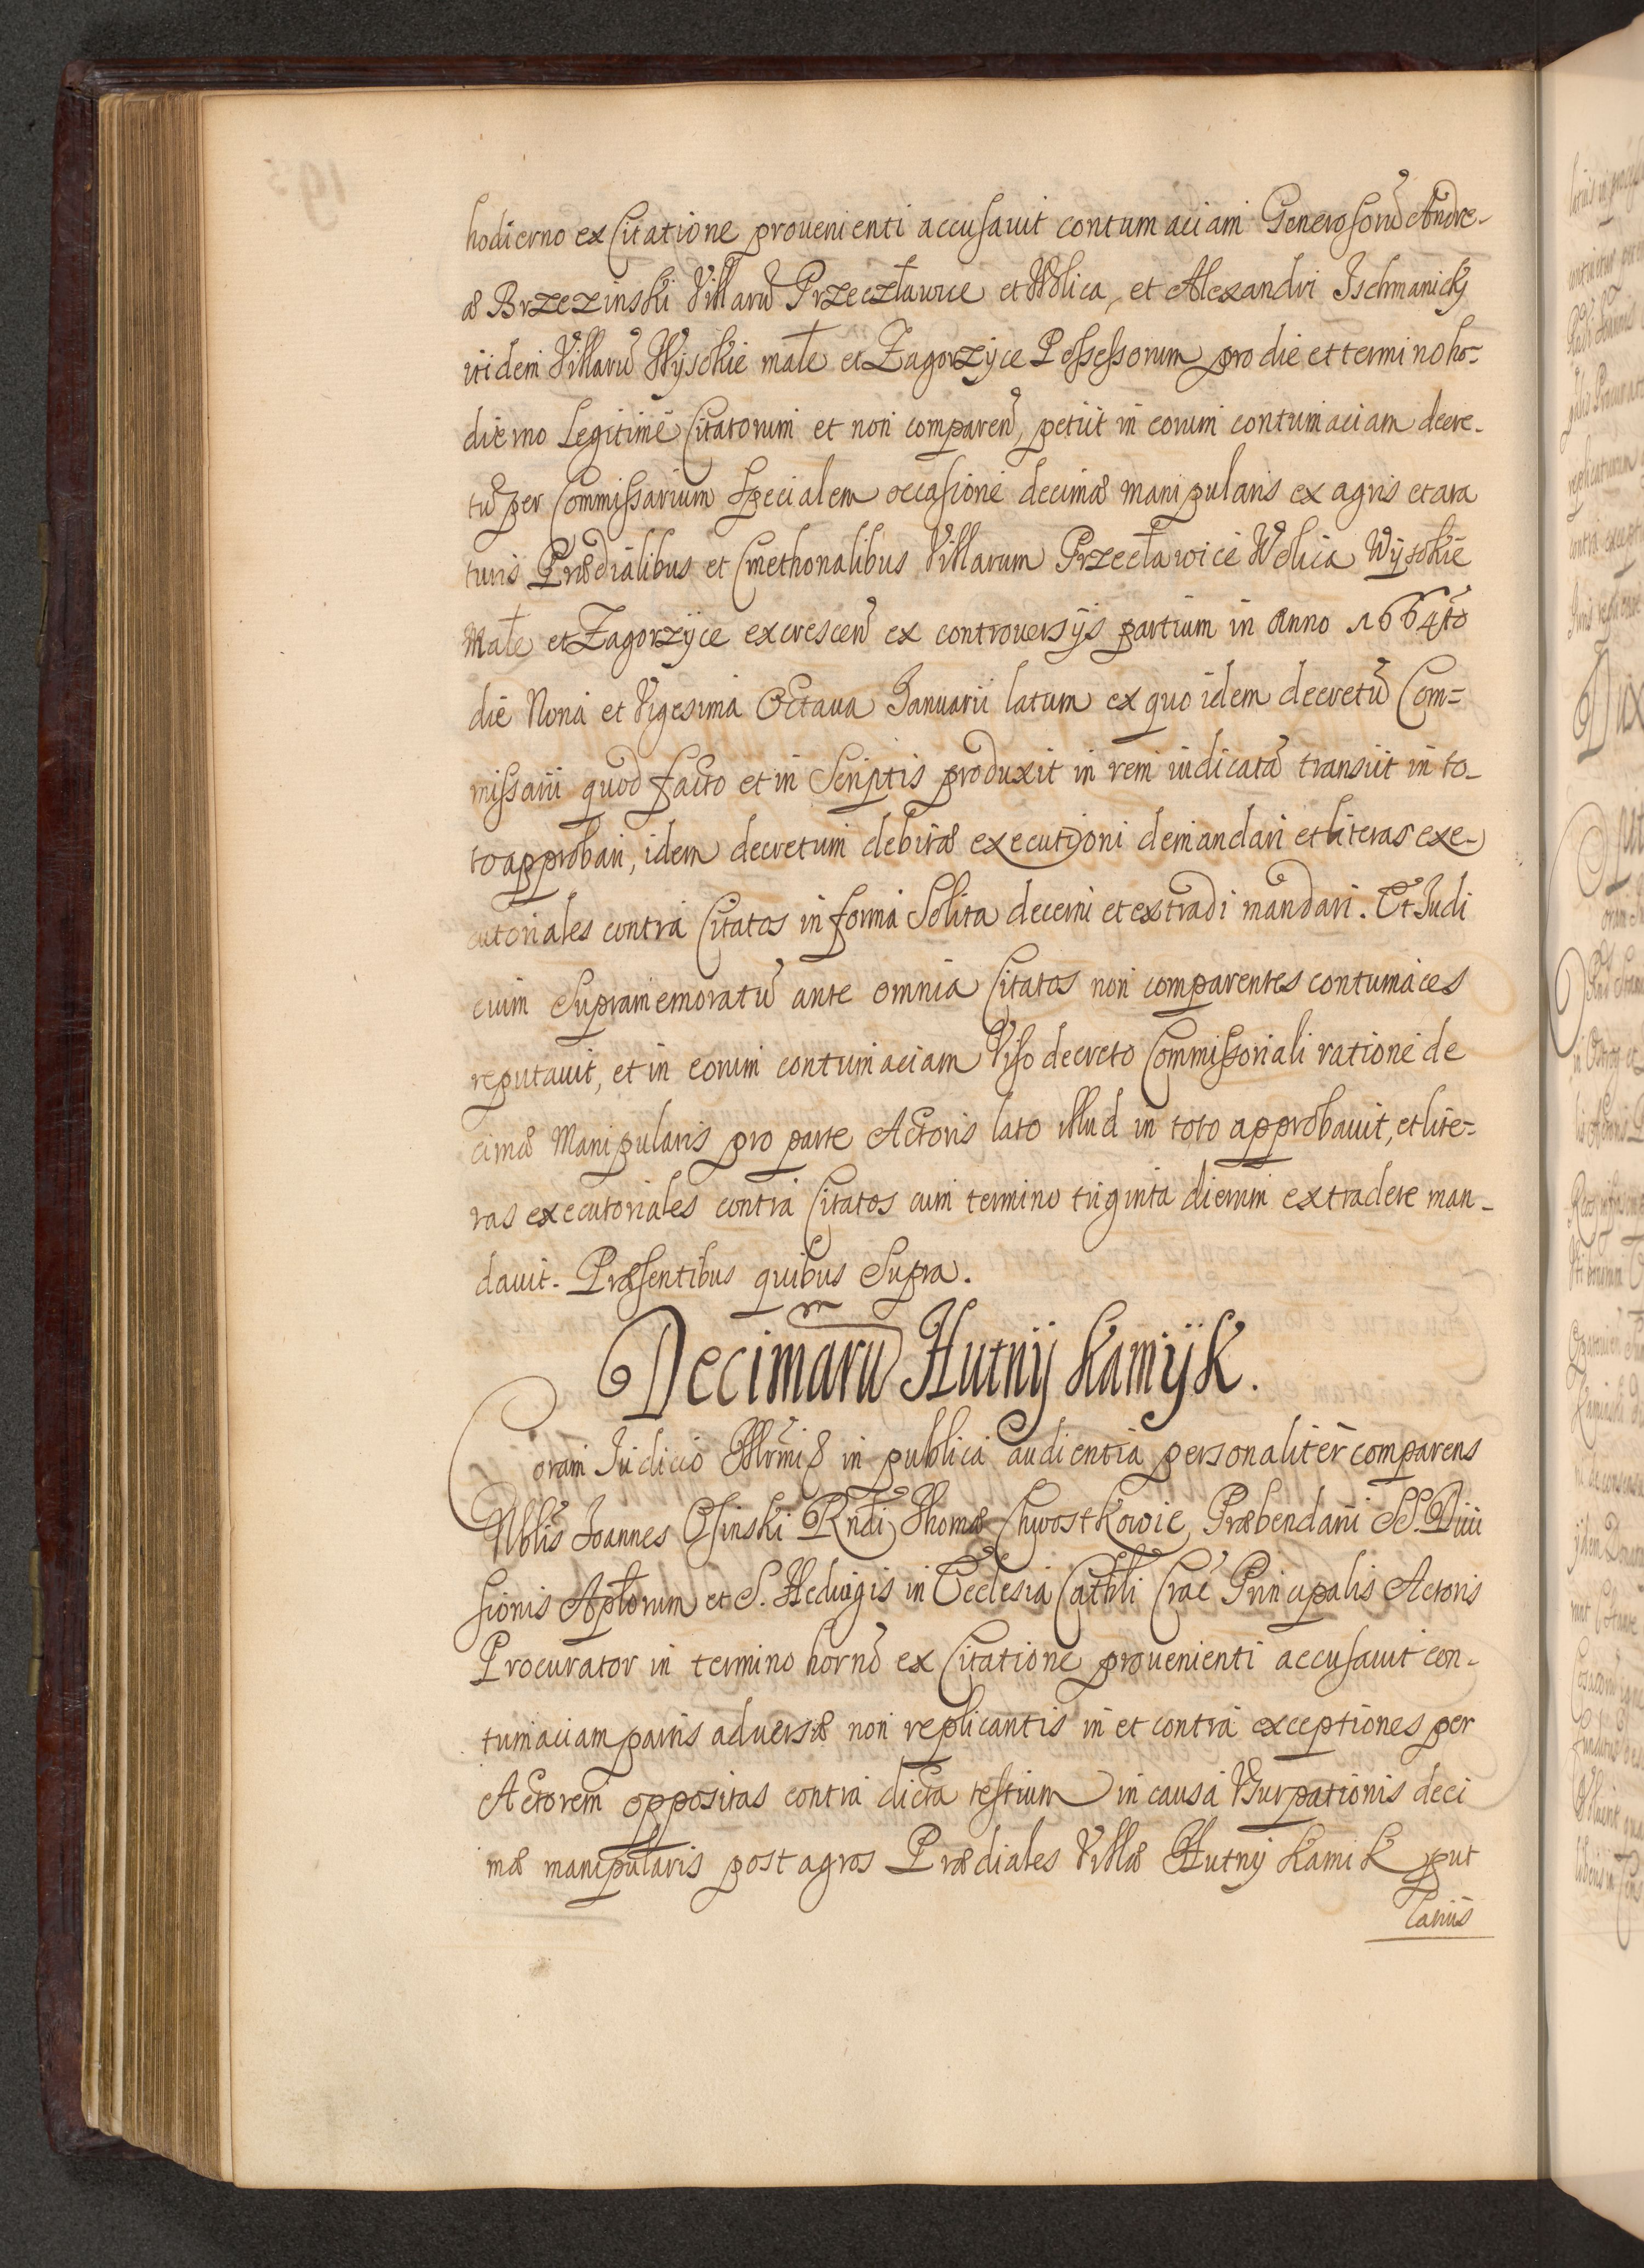 hodierno ex Citatione prouenienti accusauit contumaciam Generosorũ Andre-
æ Brzezinski Villarũ Przeczławice et Wolica, et Alexandri Ischmanicky
itidem Villarũ Wysokie małe et Zagorzyce Possessorum pro die et termino ho-
dierno Legitimè Citatorum et non comparen̄, petiit in eorum contumaciam decre-
tũ per Commissarium specialem occasione decimæ manipularis ex agris et ara
turis Prædialibus et Cmethonalibus Villarum Przecławice Wolica Wysokie
Małe et Zagorzyce excrescen̄ ex controuersijs partium in Anno 1664to
die Nona et Vigesima Octaua Januarii latum ex quo idem decretũ Com=
missarii quod facto et in Scriptis produxit in rem iudicatã transiit in to-
to approbari, idem decretum debitæ executioni demandari et literas exe-
cutoriales contra Citatos in forma Solita decerni et extradi mandari. Et Judi
cium Supramemoratũ ante omnia Citatos non comparentes contumaces
reputauit, et in eorum contumaciam Viso decreto Commissoriali ratione de
cimæ Manipularis pro parte Actoris lato illud in toto approbauit, et lite=
ras executoriales contra Citatos cum termino triginta dierum extradere man-
dauit. Præsentibus quibus Supra.
Decimarũ Hutny Kamyk.
Coram Judicio Illrmis in publica audientia personaliter comparens
Nblis Joannes Osinski Rndi Thomæ Chwostkowic Præbendarii SS. Diui
sionis Aptlorum et S. Heduigis in Ecclesia Cathli Crac Principalis Actoris
Procurator in termino horno ex Citatione prouenienti accusauit con-
tumaciam partis aduersæ non replicantis in et contra exceptiones per
Actorem oppositas contra dicta testium in causa Vsurpationis deci
mæ manipularis post agros Prædiales Villæ Hutny Kamik put
latiis